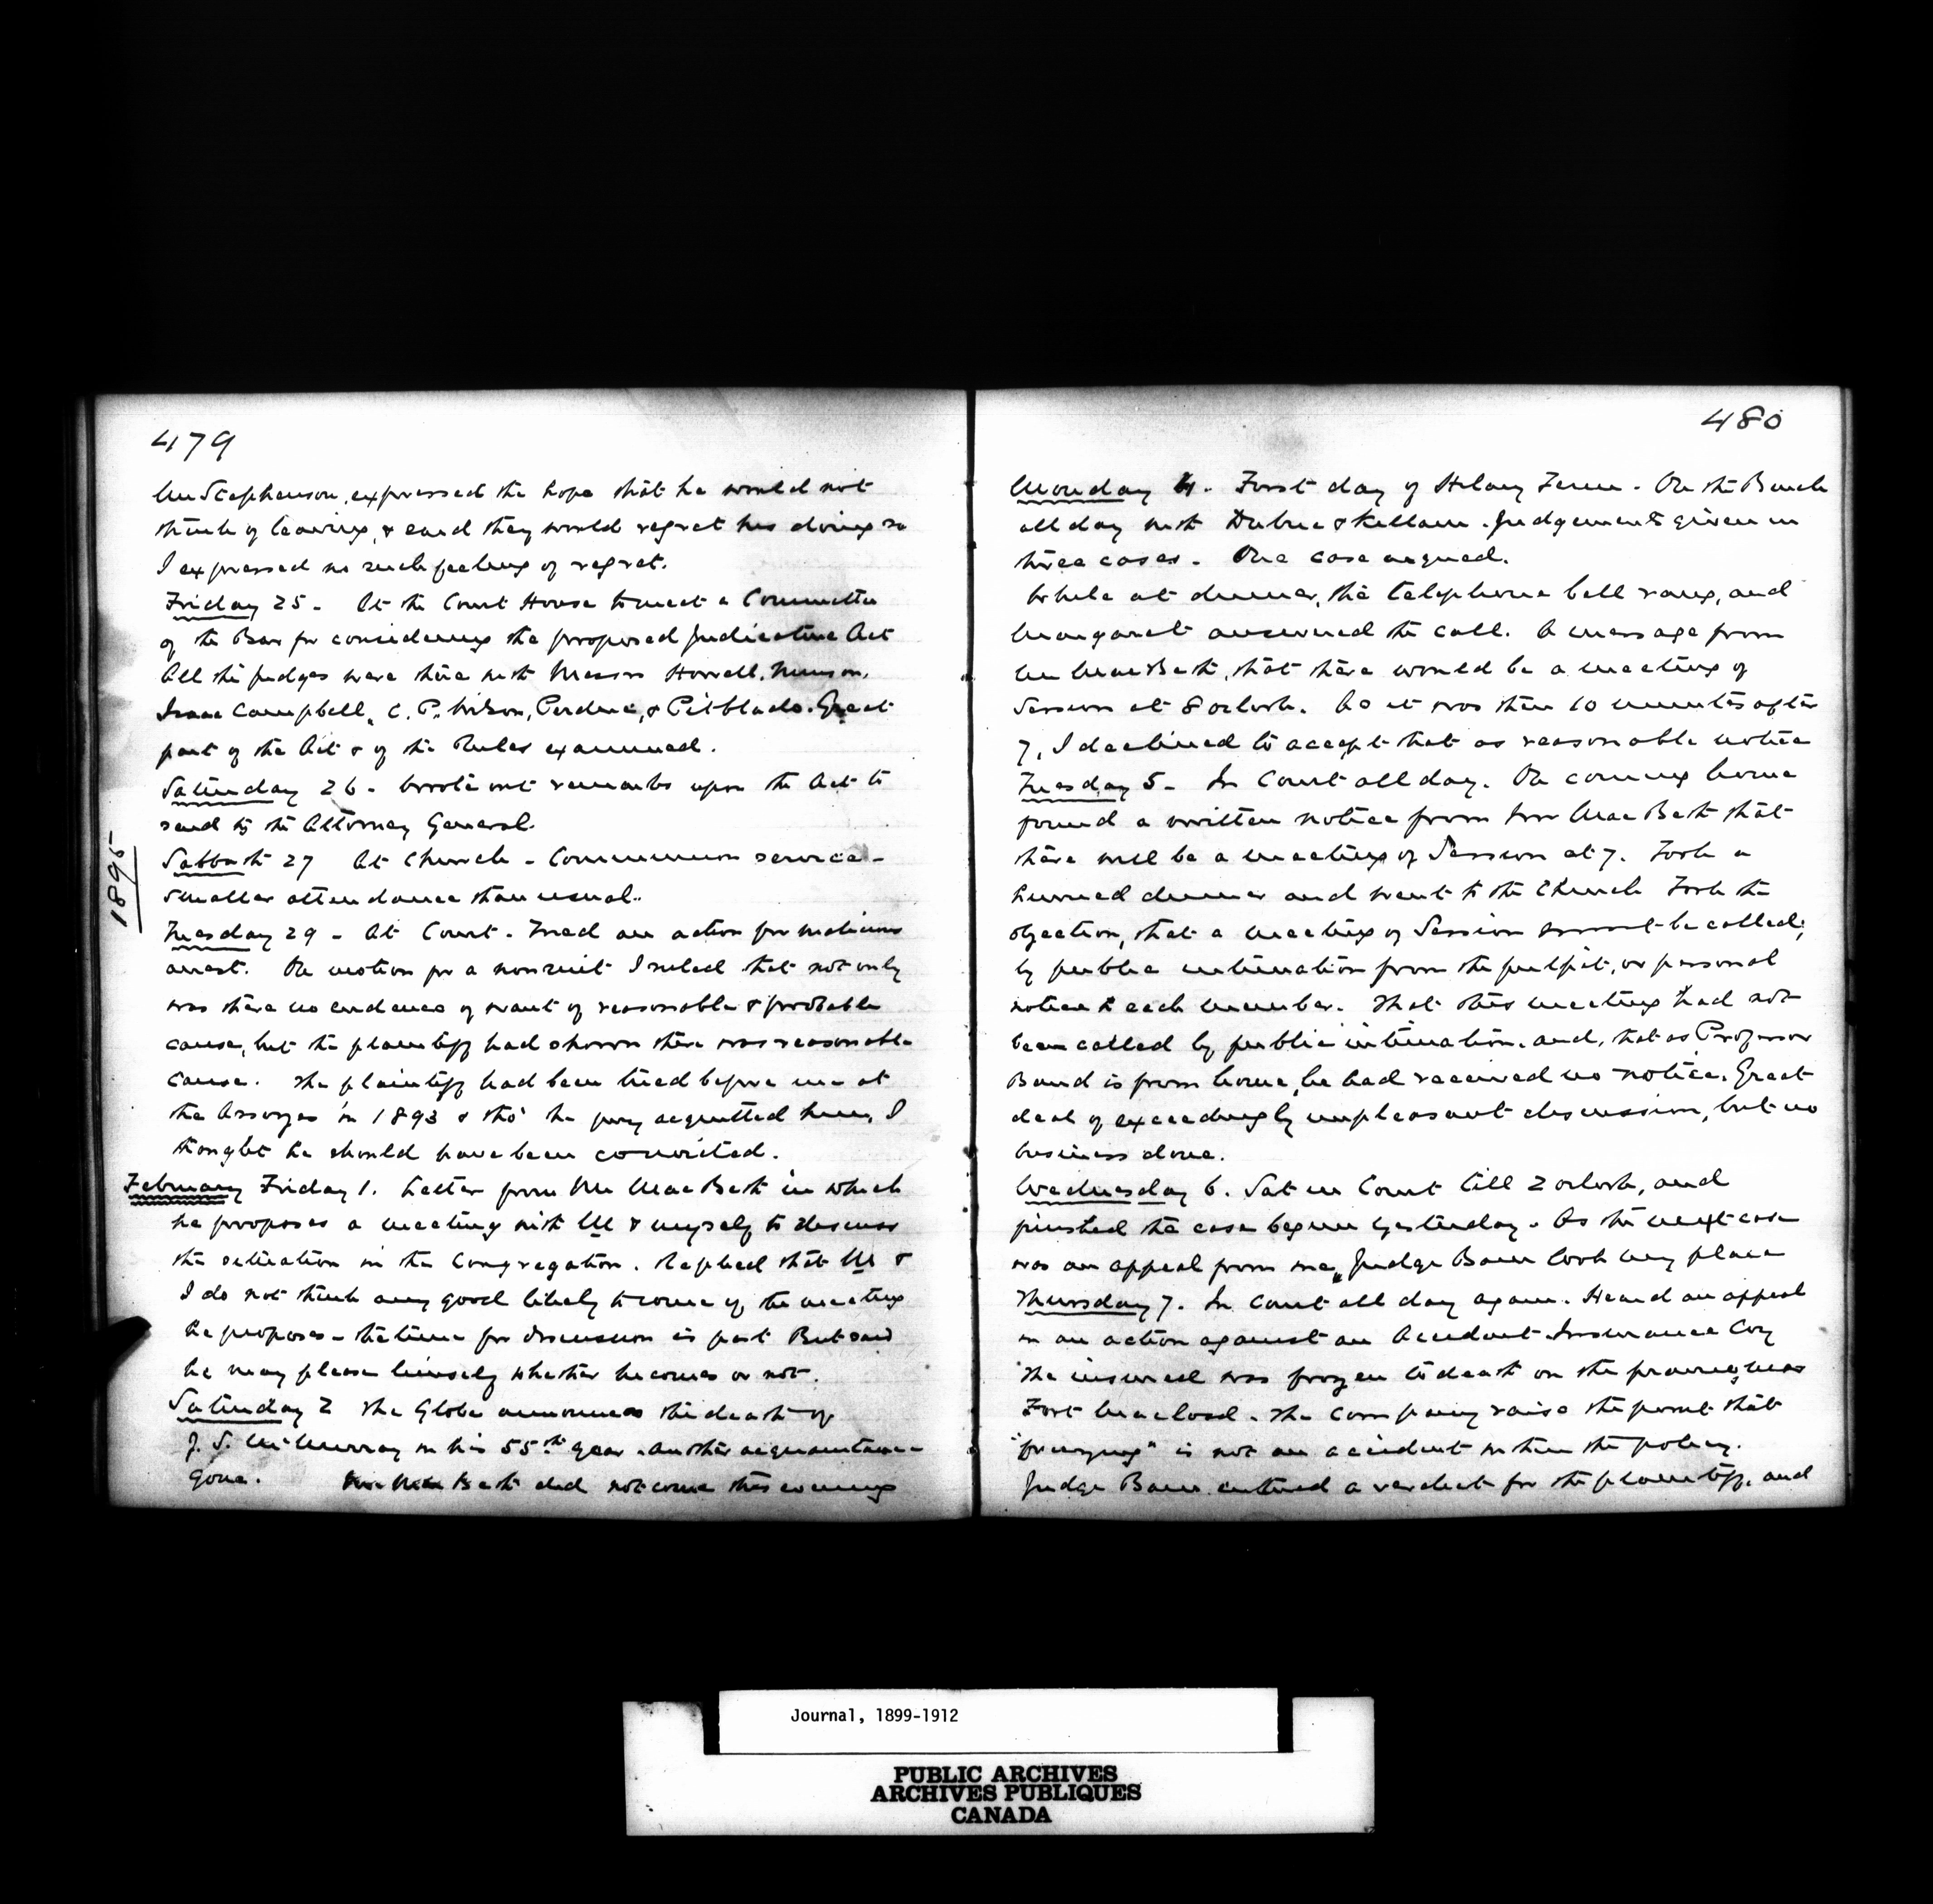 479
Mr Stephenson, expressed the hope that he would not
think of leaving, & said they would regret his doing so
I expressed no such feeling of regret.
Friday 25 - At the Court House to meet a Committee
of the Bar for considering the proposed Judicature Act
All the judges were there with Messrs Howell, Munson,
Isaac Campbell, C. P. Wilson, Perdue, & Pitblado. Great
part of the Act & of the Rules examined.
Saturday 26 - Wrote out remarks upon the Act to
send to the Attorney General.
Sabbath 27 At Church - Communion service -
smaller attendance than usual.
1895
Tuesday 29 - At Court. Tried an action for malicious
arrest. On motion for a nonsuit I ruled that not only
was there no evidence of want of reasonable & probable
cause, but the plaintiff had shown there was reasonable
cause. The plaintiff had been tried before me at
the Assizes in 1893 & tho' the jury acquitted him, I
thought he should have been convicted.
February Friday 1. Letter from Mr MacBeth in which
he proposes a meeting with M & myself to discuss
the situation in the Congregation. Replied that M &
I do not think any good likely to come of the meeting
he proposes - the time for discussion is past But said
he may please himself whether he comes or not.
Saturday 2 The Globe announces the death of
J. S. McMurray in his 55th year. Another acquaintance
gone. Mr MacBeth did not come this evening
480
Monday 4. First day of Hilary Term. On the Bench
all day with Dubuc & Killam. Judgements given in
three cases. One case argued.
While at dinner, the telephone bell rang, and
Margaret answered the call. A message from
Mr MacBeth, that there would be a meeting of
Session at 8 oclock. As it was then 10 minutes after
7, I declined to accept that as reasonable notice
Tuesday 5 - In Court all day. On coming home
found a written notice from Mr MacBeth that
there will be a meeting of Session at 7. Took a
hurried dinner and went to the Church Took the
objection, that a meeting of Session must be called,
by public intimation from the pulpit, or personal
notice to each member. That this meeting had not
been called by public intimation, and, that as Professor
Baird is from home, he had received no notice. Great
deal of exceedingly unpleasant discussion, but no
business done.
Wednesday 6. Sat in Court till 2 oclock, and
finished the case begun yesterday. As the next case
was an appeal from me, Judge Bain took my place
Thursday 7. In Court all day again. Heard an appeal
in an action against an Accident Insurance Coy
The insured was frozen to death on the prairie, near
Fort Macleod. The Company raise the point that
"freezing" is not an accident within the policy.
Judge Bain entered a verdict for the plaintiff, and
Journal, 1899-1912
PUBLIC ARCHIVES
ARCHIVES PUBLIQUES
CANADA